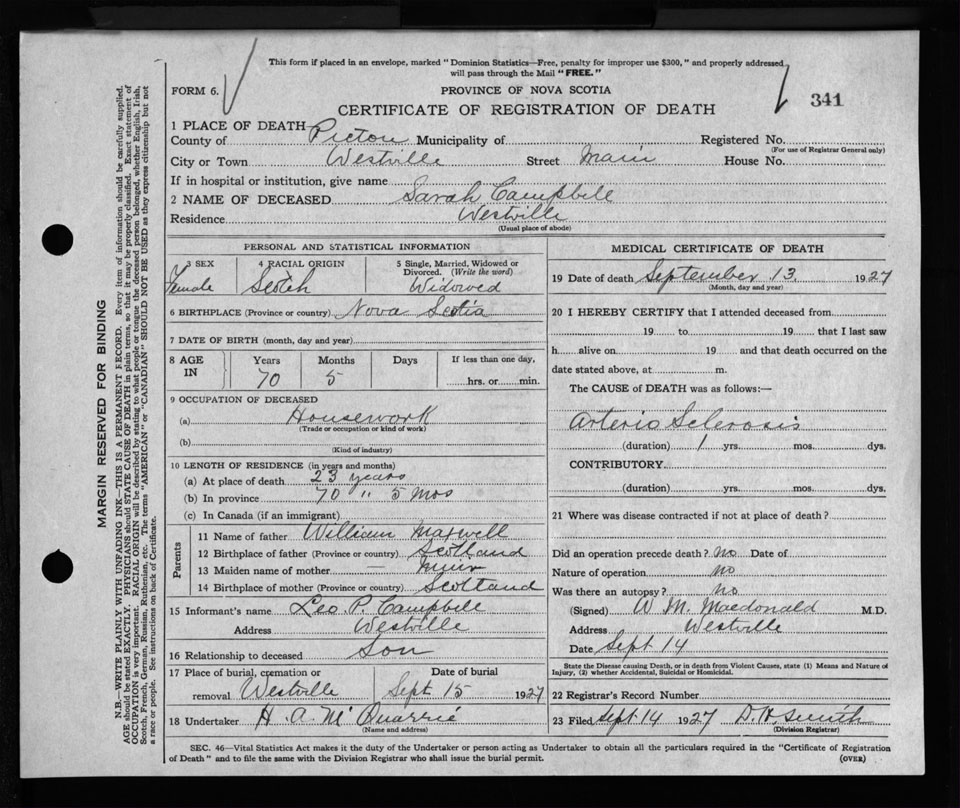 This form if placed in an envelope, marked "Dominion Statistics—Free, penalty for improper use $300," and properly addressed
will pass through the Mail "FREE."
FORM 6.
PROVINCE OF NOVA SCOTIA
CERTIFICATE OF REGISTRATION OF DEATH
341
1 PLACE OF DEATH
County of Pictou Municipality of Registered No.
(For use of Registrar General only)
City or Town Westville Street Main House No.
If in hospital or institution, give name
2 NAME OF DECEASED Sarah Campbell
Residence Westville
(Usual place of abode)
PERSONAL AND STATISTICAL INFORMATION
3 SEX 4 RACIAL ORIGIN 5 Single, Married, Widowed or
Divorced. (Write the word)
Female Scotch Widowed
6 BIRTHPLACE (Province or country) Nova Scotia
7 DATE OF BIRTH (month, day and year)
8 AGE IN Years Months Days If less than one day,
70 5 hrs. or min.
9 OCCUPATION OF DECEASED
(a) Housework
(Trade or occupation or kind of work)
(b)
(Kind of industry)
10 LENGTH OF RESIDENCE (in years and months)
(a) At place of death 23 years
(b) In province 70 " 5 Mos
(c) In Canada (if an immigrant)
Parents
11 Name of father William Maxwell
12 Birthplace of father (Province or country) Scotland
13 Maiden name of mother — Muir
14 Birthplace of mother (Province or country) Scotland
15 Informant's name Leo. P. Campbell
Address Westville
16 Relationship to deceased Son
17 Place of burial, cremation or Date of burial
removal Westville Sept 15 1927
18 Undertaker H. A. McQuarrie
(Name and address)
MEDICAL CERTIFICATE OF DEATH
19 Date of death September 13 1927
(Month, day and year)
20 I HEREBY CERTIFY that I attended deceased from
19 to 19 that I last saw
h alive on 19 and that death occurred on the
date stated above, at m.
The CAUSE of DEATH was as follows:—
Arterio Sclerosis
(duration) 1 yrs. mos. dys.
CONTRIBUTORY
(duration) yrs. mos. dys.
21 Where was disease contracted if not at place of death?
Did an operation precede death? no Date of
Nature of operation no
Was there an autopsy? no
(Signed) W. M. Macdonald M.D.
Address Westville
Date Sept 14
State the Disease causing Death, or in death from Violent Causes, state (1) Means and Nature of
Injury, (2) whether Accidental, Suicidal or Homicidal.
22 Registrar's Record Number
23 Filed Sept. 14 1927 D. H. Smith
(Division Registrar)
SEC. 46—Vital Statistics Act makes it the duty of the Undertaker or person acting as Undertaker to obtain all the particulars required in the "Certificate of Registration
of Death" and to file the same with the Division Registrar who shall issue the burial permit.
(OVER)
MARGIN RESERVED FOR BINDING
N.B.—WRITE PLAINLY WITH UNFADING INK—THIS IS A PERMANENT RECORD. Every item of information should be carefully supplied.
AGE should be stated EXACTLY. PHYSICIANS should STATE CAUSE OF DEATH in plain terms, so that it may be properly classified. Exact statement of
OCCUPATION is very important. RACIAL ORIGIN will be described by stating to what people or tongue the deceased person belonged, whether English, Irish,
Scotch, French, German, Russian, Ruthenian, etc. The terms "AMERICAN" or "CANADIAN" SHOULD NOT BE USED as they express citizenship but not
a race or people. See instructions on back of Certificate.